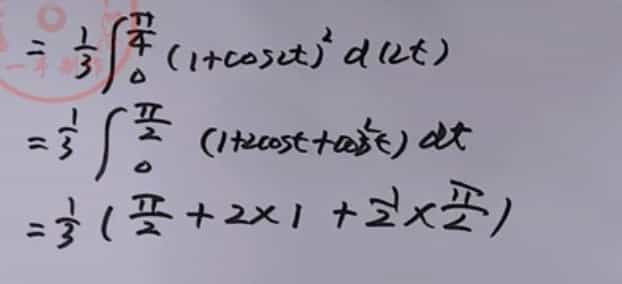 = 1/3 ∫_0^{π/4} (1+cos2t)² d(2t)
= 1/3 ∫_0^{π/2} (1+2cost+cos²t) dt
= 1/3 ( π/2 + 2×1 + 1/2 × π/2 )